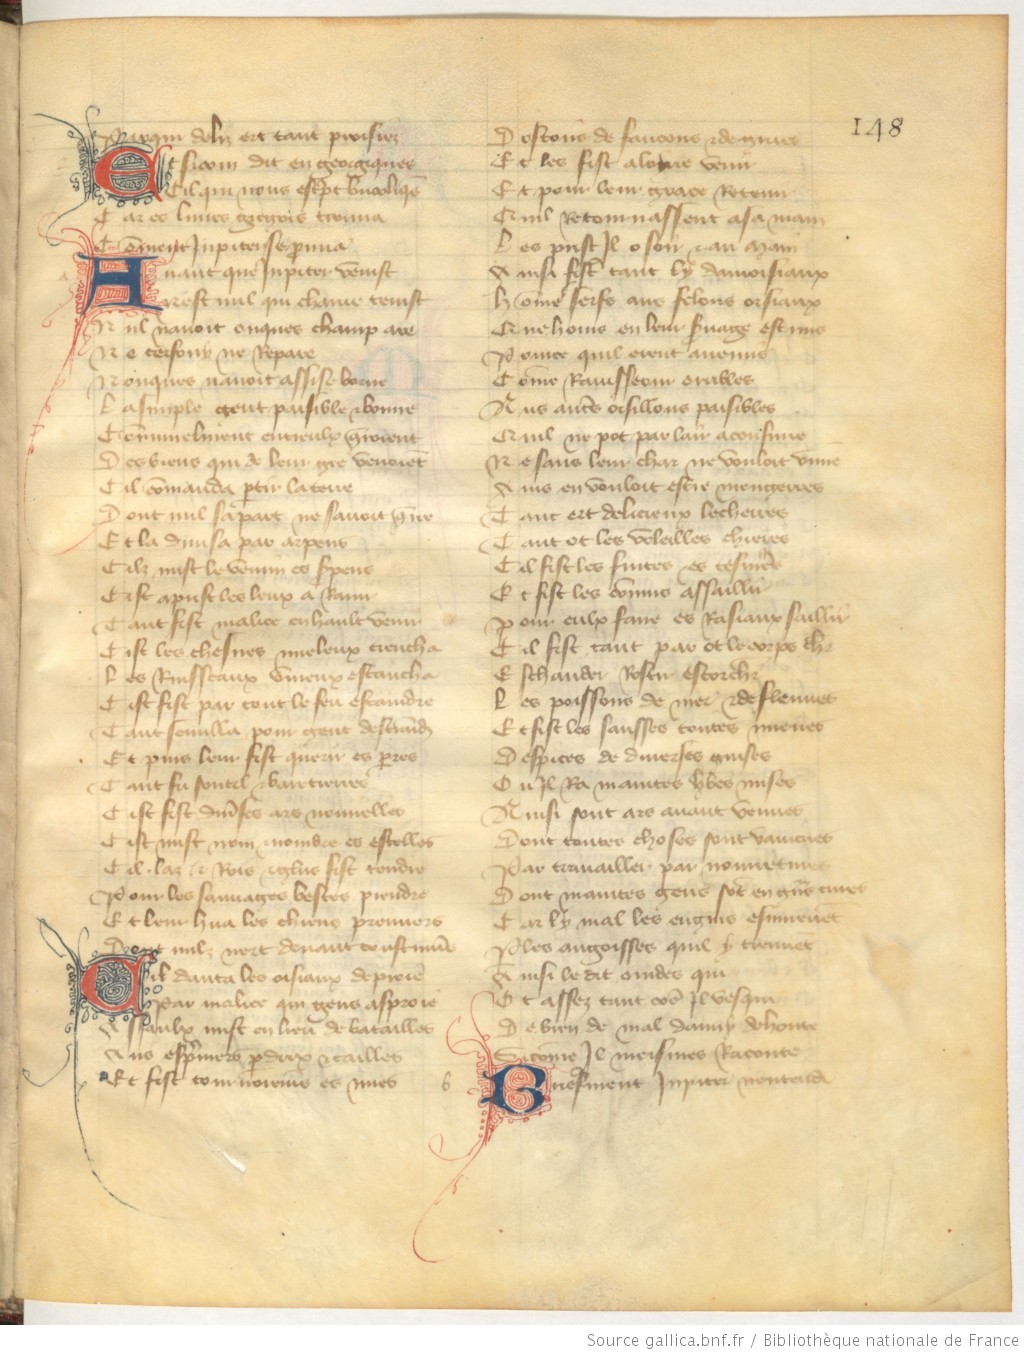 148
Par qui deliz ert tant proisiez
Et sicom dit en georgiques
Cil qui nous escpt bucoliqes
Car es liures gregois trouua
Coment Jupiter se prouua
Auant que Jupiter venist
Niert nul qui charue tenist
Nul nauoit onques champ are
Ne cerfouy ne Repare
Nonques nauoit assise borne
La simple gent paisible & bonne
Communelment entreulx queroient
Des biens qui de leur gre venoiet
Cil comanda partir la terre
Dont nul sa part ne sauoit querre
Et la diuisa par arpens
Cilz mist le venim es serpens
Cist aprist les leux a Rauir
Tant fist malice en hault venir
Cist les chesnes mieleux trencha
Les Ruisseaux vineux estancha
Cist fist par tout le feu estaindre
Tant semilla pour gent destraindre
Et puis leur fist querir es pierres
Tant fu soutil & baretierres
Cist fist diuerses ars nouuelles
Cist mist nom & nombre es estelles
Cil laz & Rois & glus fist tendre
Pour les sauuages bestes prendre
Et leur hua les chiens premiers
Dont nulz niert deuant coustumiers
Cil danta les oisiaux de proie
Par malice qui gens asproie
Assaulx mist en lieu de batailles
Ans espriuiers perdrix & cailles
Et fist tournoiemens es nues
Dostours de faucons & de grues
Et les fist a loirre venir
Et pour leur grace Retenir
Qu il Retournassent a sa main
Les pust Il o soir & au main
Ainsi fist tant ly damoisiaux
Home serfs aus felons oisiaux
Qu ne homs en leur seruage est mis
Pource quil erent anemis
Come Rauisseour orables
Aus autres oisillons paisibles
Qu il ne pot par lair aconsiure
Ne sans leur char ne vouloit viure
Ains en vouloit estre mengierres
Tant ert delicieux lechierres
Tant ot les voleilles chieres
Cil fist les fuires es tesnieres
Et fist les connins assaillir
Pour eulx faire es Rasiaux saillir
Cil fist tant par ot le corps chier
Eschauder Rostir escorchier
Les poissons de mer & de fleuues
Et fist les sausses toutes nueues
Despices de diuerses guises
Ou Il Ra maintes herbes mises
Ainsi sont ars auant venues
Dont toutes choses sont vaincues
Par trauailler par nouuretures
Dont maintes gens sont en gus cures
Car ly mal les engins esmueuet
Ples angoisses quil y treuuet
Ainsi le dit ouides qui
Ot assez tant com Il vesqui
De bien de mal damy de honte
Sicome Il meismes Raconte
Briefment Jupiter nentendi